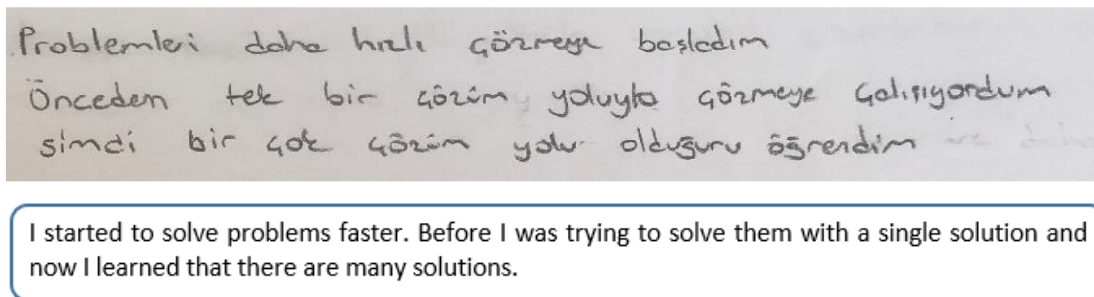 Problemleri daha hızlı çözmeye başladım
Önceden tek bir çözüm yoluyla çözmeye çalışıyordum
şimdi bir çok çözüm yolu olduğunu öğrendim
I started to solve problems faster. Before I was trying to solve them with a single solution and
now I learned that there are many solutions.